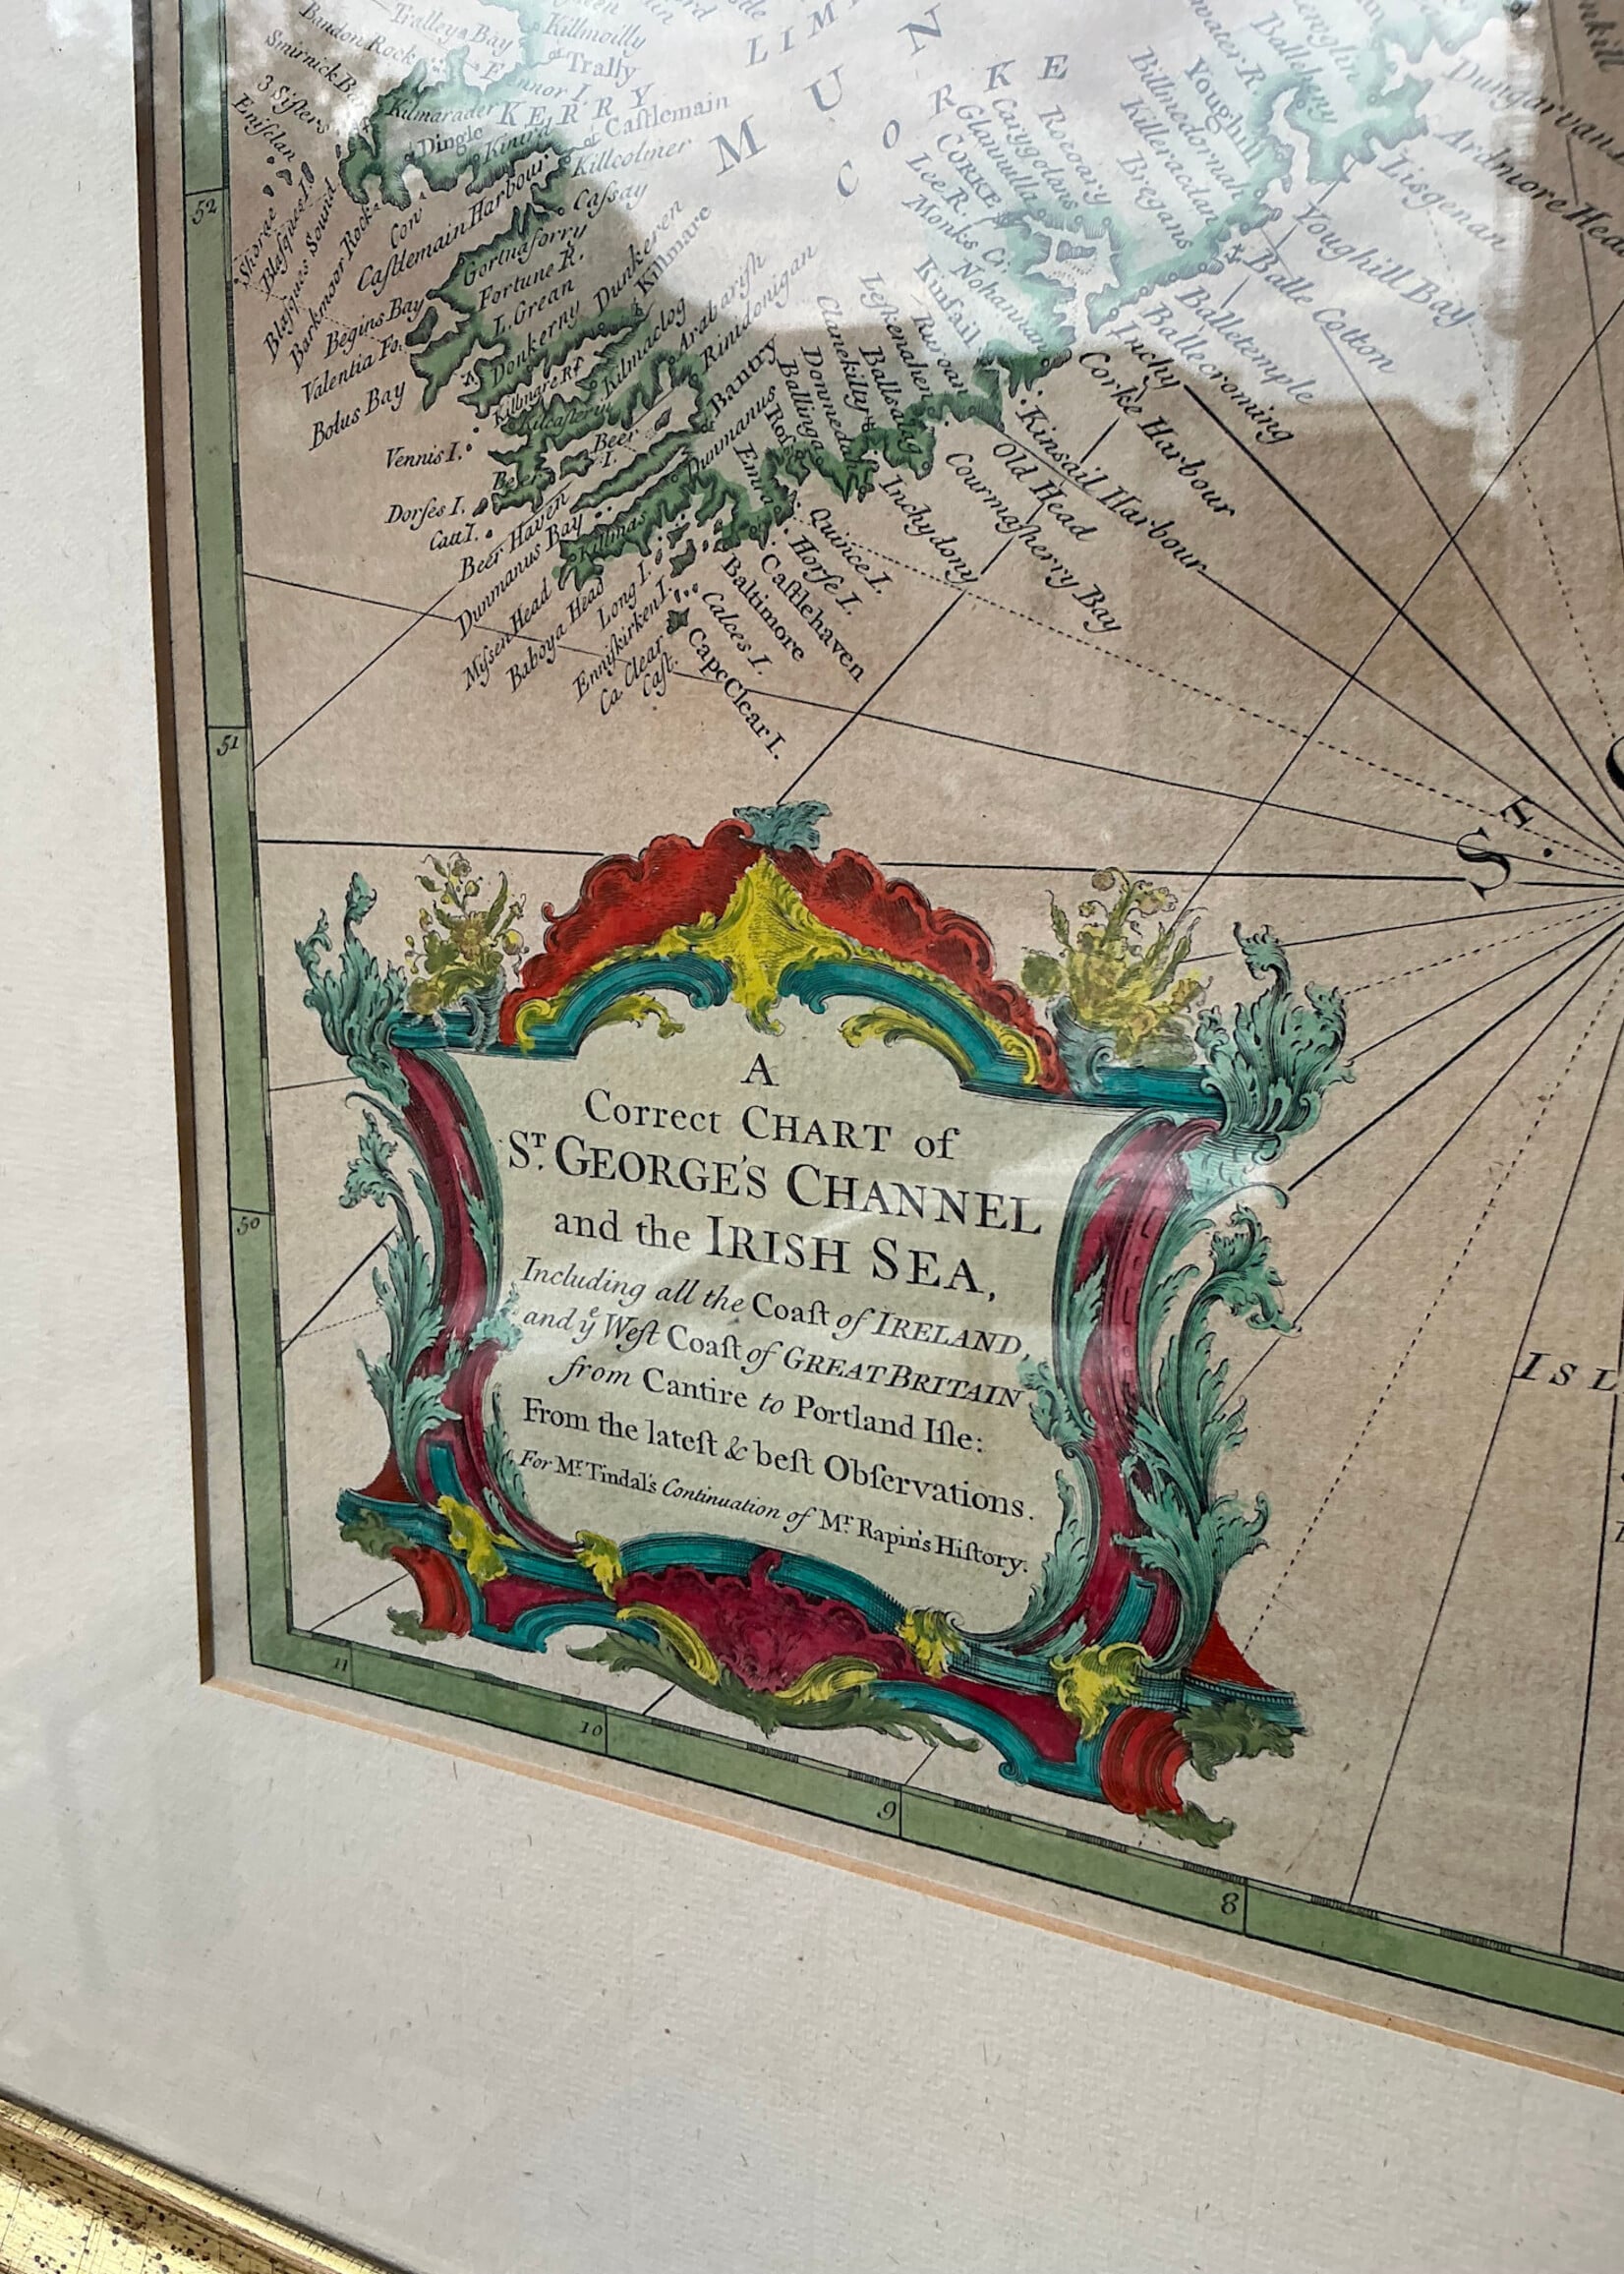 Tralleys Bay
Killmoilly
Bandon Rock
Trally
Smirnick Ba
3 Siſters
Eniſlan
Kilmarader
KERRY
Dingle
Caſtlemain
Killcolmer
Caſsay
LIM
MUN
CORKE
Castlemain Harbour
Con
Shoree
Blaſques I.
Blaſques Sound
Barkmoor Rock
Begins Bay
Valentia Fo.
Botus Bay
Gortnaforry
Fortune R.
L. Grean
Dunkeren
Killmare
Donkerny
Killmore R.
Kilmaclog
Arabariſh
Rinidonigan
Vennis I.
Beer I.
Bantry
Dunmanus
Roſs
Emra
Ballinga
Donmedah
Clanekilty
Ballsalag
Leſkenahen
Ruroan
Kinſail
Nohannan
Monks Ci.
Lee R.
CORKE
Glanwilla
Carygodans
Rocoary
Bregans
Killeracdan
Billnedornah
Youghill
Ballehery
Dungarvan
Ardmore Head
Lisgenan
Youghill Bay
Balle Cotton
Balletemple
Ballecroming
Inchy
Corke Harbour
Kinsail Harbour
Old Head
Courmaſherry Bay
Inchydony
Quince I.
Horſe I.
Caſtlehaven
Baltimore
Calces I.
Cape Clear I.
Dorſes I.
Catt I.
Beer Haven
Dunmanus Bay
Killmas
Miſsen Head
Baboya Head
Long I.
Enniſkirken I.
Ca. Clear
Caſt.
52
51
50
St.
A
Correct CHART of
ST. GEORGE'S CHANNEL
and the IRISH SEA,
Including all the Coaſt of IRELAND,
and ye Weſt Coaſt of GREAT BRITAIN
from Cantire to Portland Iſle:
From the lateſt & beſt Obſervations.
For Mr. Tindal's Continuation of Mr. Rapin's Hiſtory.
ISL
11
10
9
8